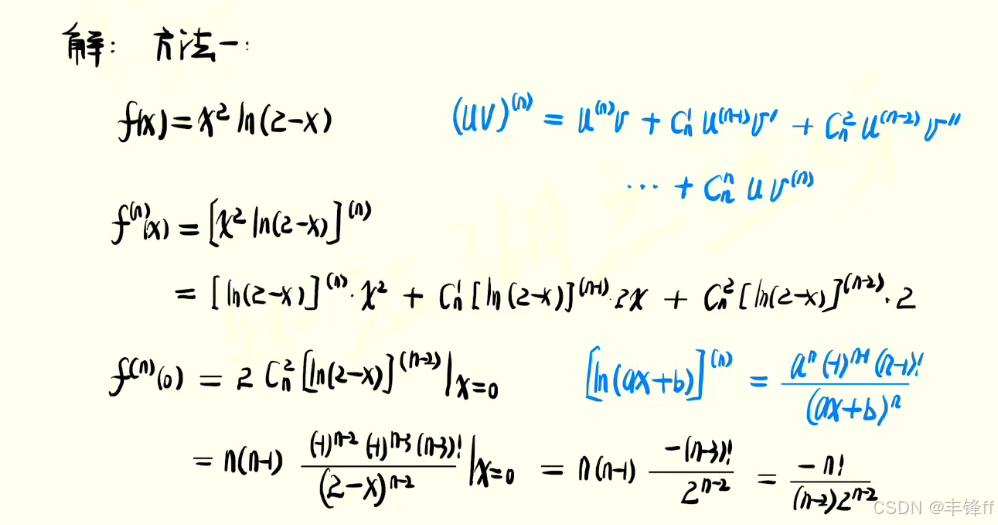 解: 方法一:
f(x) = x² ln(2-x) (uv)⁽ⁿ⁾ = u⁽ⁿ⁾v + Cₙ¹ u⁽ⁿ⁻¹⁾v' + Cₙ² u⁽ⁿ⁻²⁾v''
··· + Cₙⁿ u v⁽ⁿ⁾
f⁽ⁿ⁾(x) = [x² ln(2-x)]⁽ⁿ⁾
= [ln(2-x)]⁽ⁿ⁾·x² + Cₙ¹ [ln(2-x)]⁽ⁿ⁻¹⁾·2x + Cₙ² [ln(2-x)]⁽ⁿ⁻²⁾·2
f⁽ⁿ⁾(0) = 2 Cₙ² [ln(2-x)]⁽ⁿ⁻²⁾|ₓ₌₀ [ln(ax+b)]⁽ⁿ⁾ = aⁿ(-1)ⁿ⁻¹(n-1)! / (ax+b)ⁿ
= n(n-1) (-1)ⁿ⁻²(-1)ⁿ⁻³(n-3)! / (2-x)ⁿ⁻² |ₓ₌₀ = n(n-1) -(n-3)! / 2ⁿ⁻² = -n! / (n-2)2ⁿ⁻²
CSDN @丰锋ff